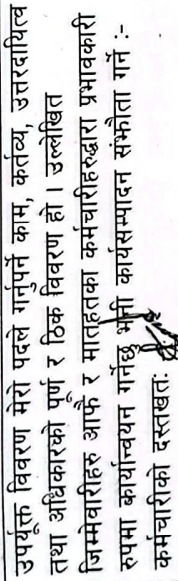 उपर्युक्त विवरण मेरो पदले गर्नुपर्ने काम, कर्तव्य, उत्तरदायित्व
तथा अधिकारको पूर्ण र ठिक विवरण हो । उल्लेखित
जिम्मेवारीहरु आफै र मातहतका कर्मचारीहरुद्धारा प्रभावकारी
रुपमा कार्यान्वयन गर्नेछु भनी कार्यसम्पादन संझौता गर्ने :-
कर्मचारीको दस्तखतः